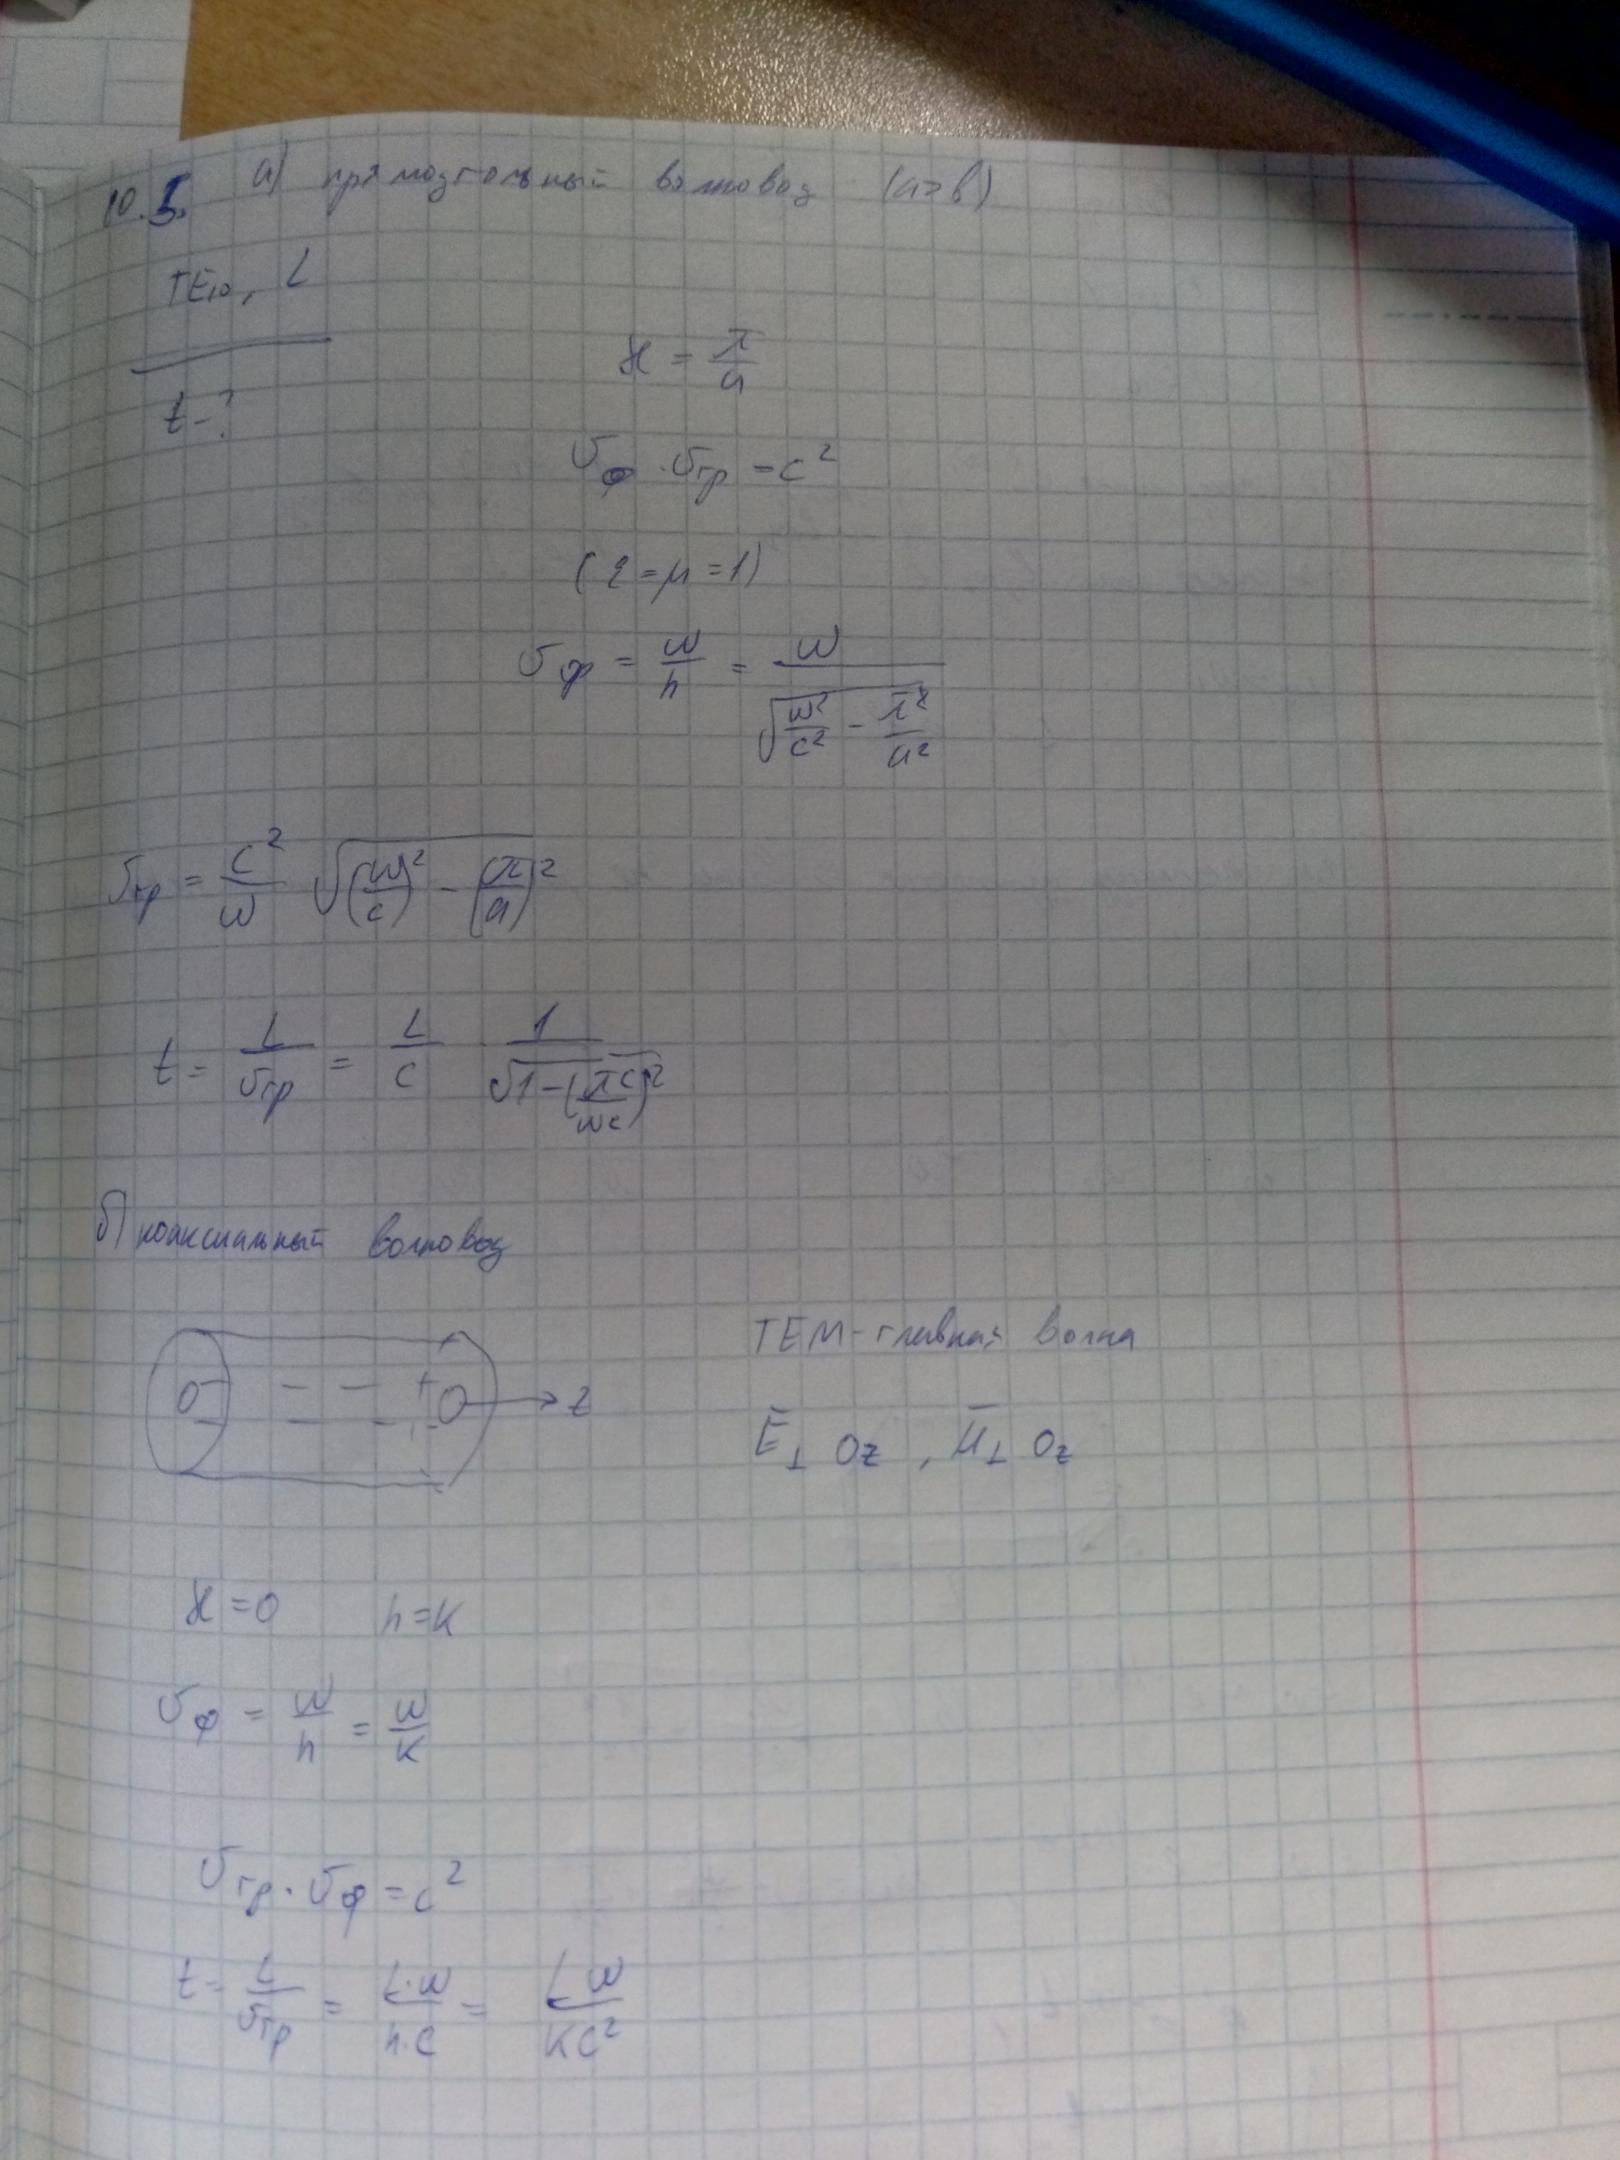 10.5. а) прямоугольный волновод (a>b)
TE₁₀, L
t-?
ϰ = π/a
υф · υгр = c²
(ε=μ=1)
υф = ω/h = ω/√(ω²/c² - π²/a²)
υгр = c²/ω √((ω/c)² - (π/a)²)
t = L/υгр = L/c 1/√(1-(πc/ωc)²)
б) коаксиальный волновод
z
TEM-главная волна
E̅⊥ Oz , H̅⊥ Oz
ϰ=0 h=k
υф = ω/h = ω/k
υгр · υф = c²
t = L/υгр = L·ω/h·c = Lω/kc²